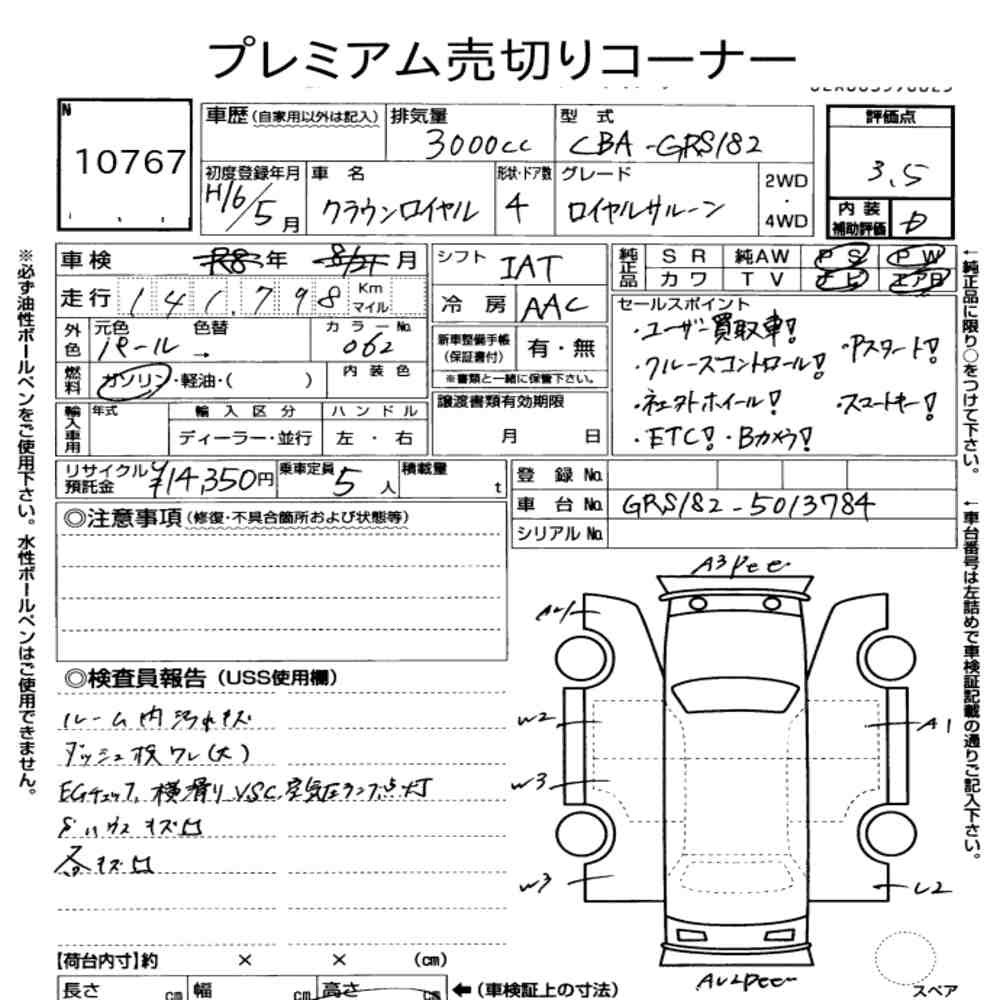 プレミアム売切りコーナー
N
10767
車歴 (自家用以外は記入)
排気量
3000cc
型 式
CBA-GRS182
評価点
3.5
初度登録年月
H16/5月
車 名
クラウンロイヤル
形状・ドア数
4
グレード
ロイヤルサルーン
2WD
・
4WD
内装
補助評価
D
車検
R8年
月
シフト
IAT
純正品
S R
純AW
P S
P W
カワ
T V
ナビ
エアB
走行
141,798
Km
マイル
冷 房
AAC
セールスポイント
・ユーザー買取車!
・クルーズコントロール!
・Pスタート!
・ETC! ・Bカメラ!
・スマートキー!
外色
元色
パール
色替
→
カラーNo.
062
新車整備手帳
(保証書付)
有・無
※書類と一緒に保管下さい。
燃料
ガソリン・軽油・( )
内装色
譲渡書類有効期限
月 日
輸入車用
年式
輸入区分
ディーラー・並行
ハンドル
左 ・ 右
リサイクル
預託金
¥14,350円
乗車定員
5人
積載量
t
登 録 No.
車 台 No.
GRS182-5013784
シリアル No.
◎注意事項 (修復・不具合箇所および状態等)
◎検査員報告 (USS使用欄)
ルーム内汚れキズ
ダッシュ板ワレ(大)
EGチェック、横滑り、VSC、空気圧ランプ点灯
キズ凹
各キズ凹
A1
W2
W3
W3
A1
U2
【荷台内寸】約 × × (cm)
長さ cm
幅 cm
高さ cm
← (車検証上の寸法)
スペア
※必ず油性ボールペンをご使用下さい。水性ボールペンはご使用できません。
←純正品に限り○をつけて下さい。
←車台番号は左詰めで車検証記載の通りご記入下さい。